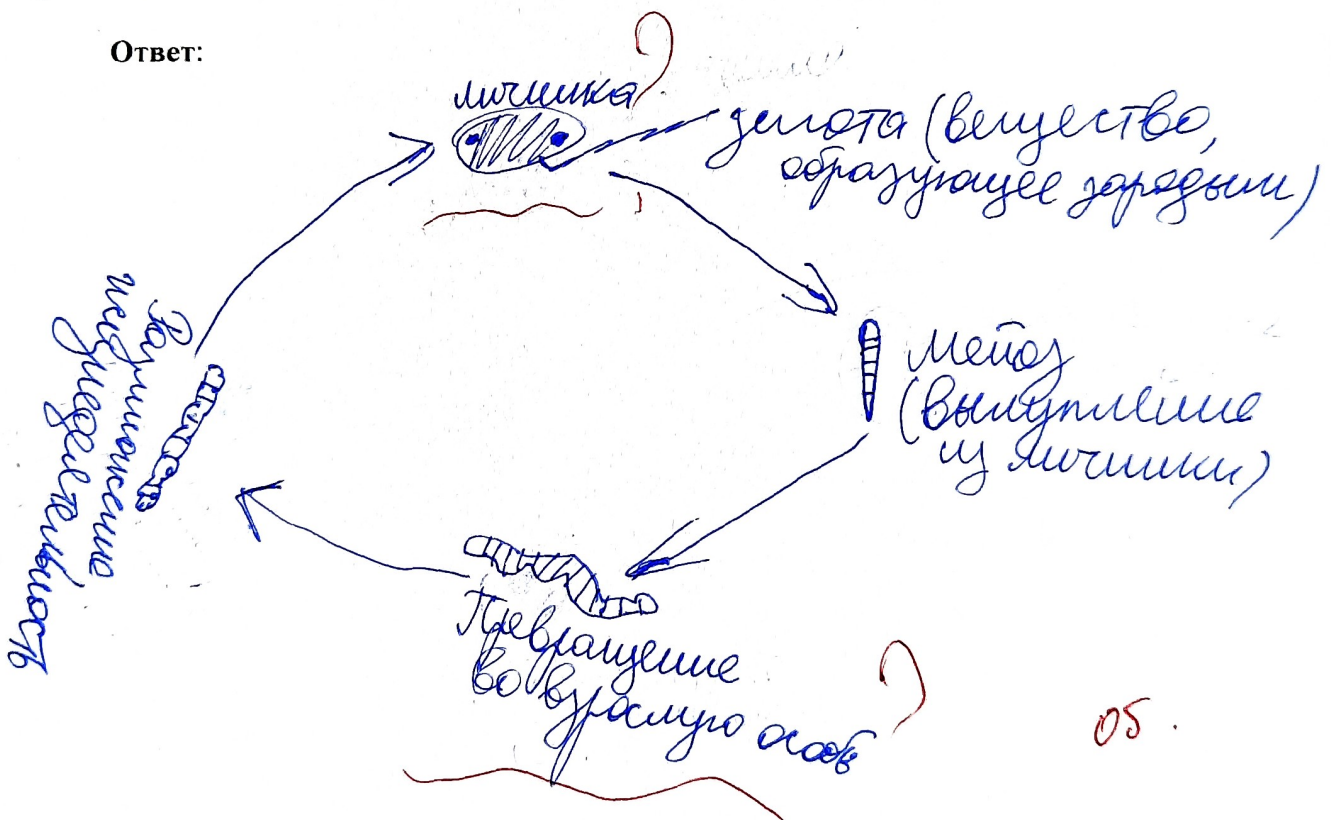 Ответ:
личинка ?
зигота (вещество,
образующее зародыш)
Мейоз
(вылупление
из личинки)
Превращение
во взрослую особь ?
Размножение
и
жизнедеятельность
0б.